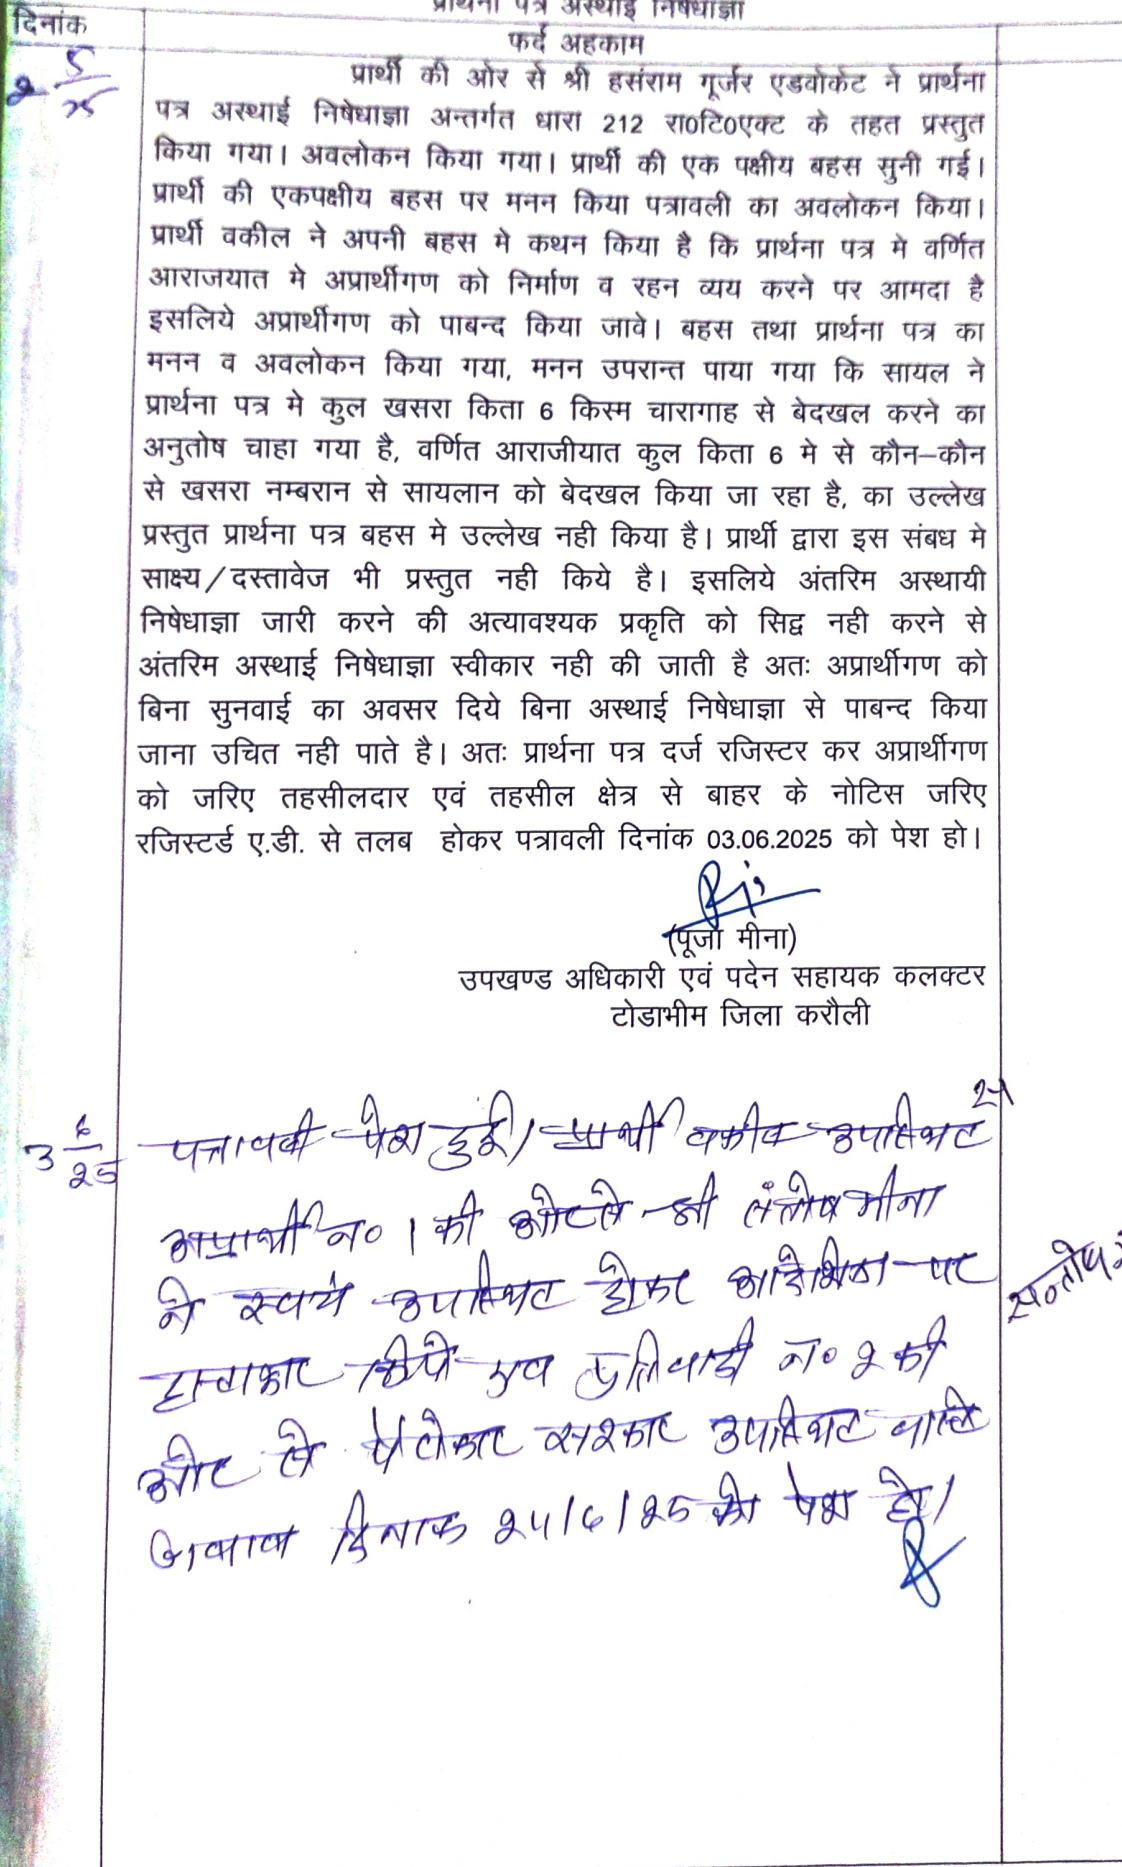 प्रार्थना पत्र अस्थाई निषेधाज्ञा
दिनांक
फर्द अहकाम
2 5/25
प्रार्थी की ओर से श्री हसंराम गूर्जर एडवोकेट ने प्रार्थना
पत्र अस्थाई निषेधाज्ञा अन्तर्गत धारा 212 रा0टि0एक्ट के तहत प्रस्तुत
किया गया। अवलोकन किया गया। प्रार्थी की एक पक्षीय बहस सुनी गई।
प्रार्थी की एकपक्षीय बहस पर मनन किया पत्रावली का अवलोकन किया।
प्रार्थी वकील ने अपनी बहस मे कथन किया है कि प्रार्थना पत्र मे वर्णित
आराजयात मे अप्रार्थीगण को निर्माण व रहन व्यय करने पर आमदा है
इसलिये अप्रार्थीगण को पाबन्द किया जावे। बहस तथा प्रार्थना पत्र का
मनन व अवलोकन किया गया, मनन उपरान्त पाया गया कि सायल ने
प्रार्थना पत्र मे कुल खसरा किता 6 किस्म चारागाह से बेदखल करने का
अनुतोष चाहा गया है, वर्णित आराजीयात कुल किता 6 मे से कौन–कौन
से खसरा नम्बरान से सायलान को बेदखल किया जा रहा है, का उल्लेख
प्रस्तुत प्रार्थना पत्र बहस मे उल्लेख नही किया है। प्रार्थी द्वारा इस संबध मे
साक्ष्य/दस्तावेज भी प्रस्तुत नही किये है। इसलिये अंतरिम अस्थायी
निषेधाज्ञा जारी करने की अत्यावश्यक प्रकृति को सिद्व नही करने से
अंतरिम अस्थाई निषेधाज्ञा स्वीकार नही की जाती है अतः अप्रार्थीगण को
बिना सुनवाई का अवसर दिये बिना अस्थाई निषेधाज्ञा से पाबन्द किया
जाना उचित नही पाते है। अतः प्रार्थना पत्र दर्ज रजिस्टर कर अप्रार्थीगण
को जरिए तहसीलदार एवं तहसील क्षेत्र से बाहर के नोटिस जरिए
रजिस्टर्ड ए.डी. से तलब होकर पत्रावली दिनांक 03.06.2025 को पेश हो।
(पूजा मीना)
उपखण्ड अधिकारी एवं पदेन सहायक कलक्टर
टोडाभीम जिला करौली
3 6/25 पत्रावली पेश हुई। प्रार्थी वकील उपस्थित
अप्रार्थी न० 1 की ओर से श्री संतोष मीना
ने स्वयं उपस्थित होकर आदेशिका पर
हस्ताक्षर किये एव प्रतिवादी न० 2 की
ओर से पैरोकार सरकार उपस्थित वास्ते
जवाब दिनांक 24/6/25 को पेश हो।
सन्तोष